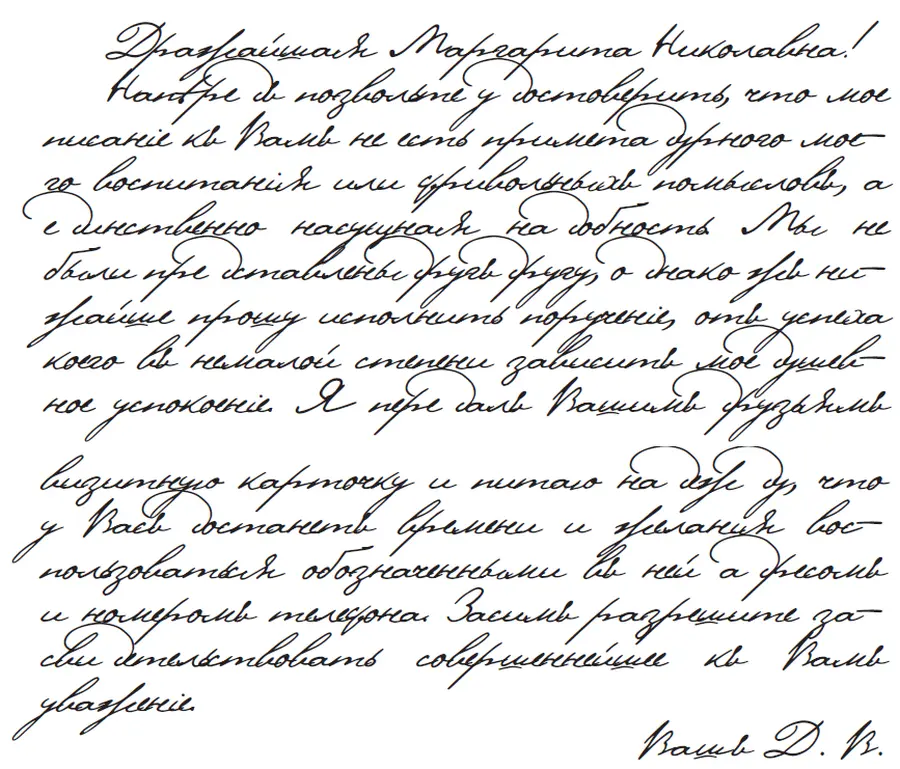 Дражайшая Маргарита Николавна!
Наперед позвольте удостоверить, что мое
писаніе къ Вамъ не есть примета дурного мое-
го воспитанія или фривольныхъ помысловъ, а
единственно насущная надобность Мы не
были представлены другъ другу, однако жъ ни-
жайше прошу исполнить порученіе, отъ успеха
коего въ немалой степени зависитъ мое душев-
ное успокоеніе. Я передалъ Вашимъ друзьямъ
визитную карточку и питаю надежду, что
у Васъ достанетъ времени и желанія вос-
пользоваться обозначенными въ ней адресомъ
и номеромъ телефона. Засимъ разрешите за-
свидетельствовать совершеннейшее къ Вамъ
уваженіе.
Вашъ Д. В.